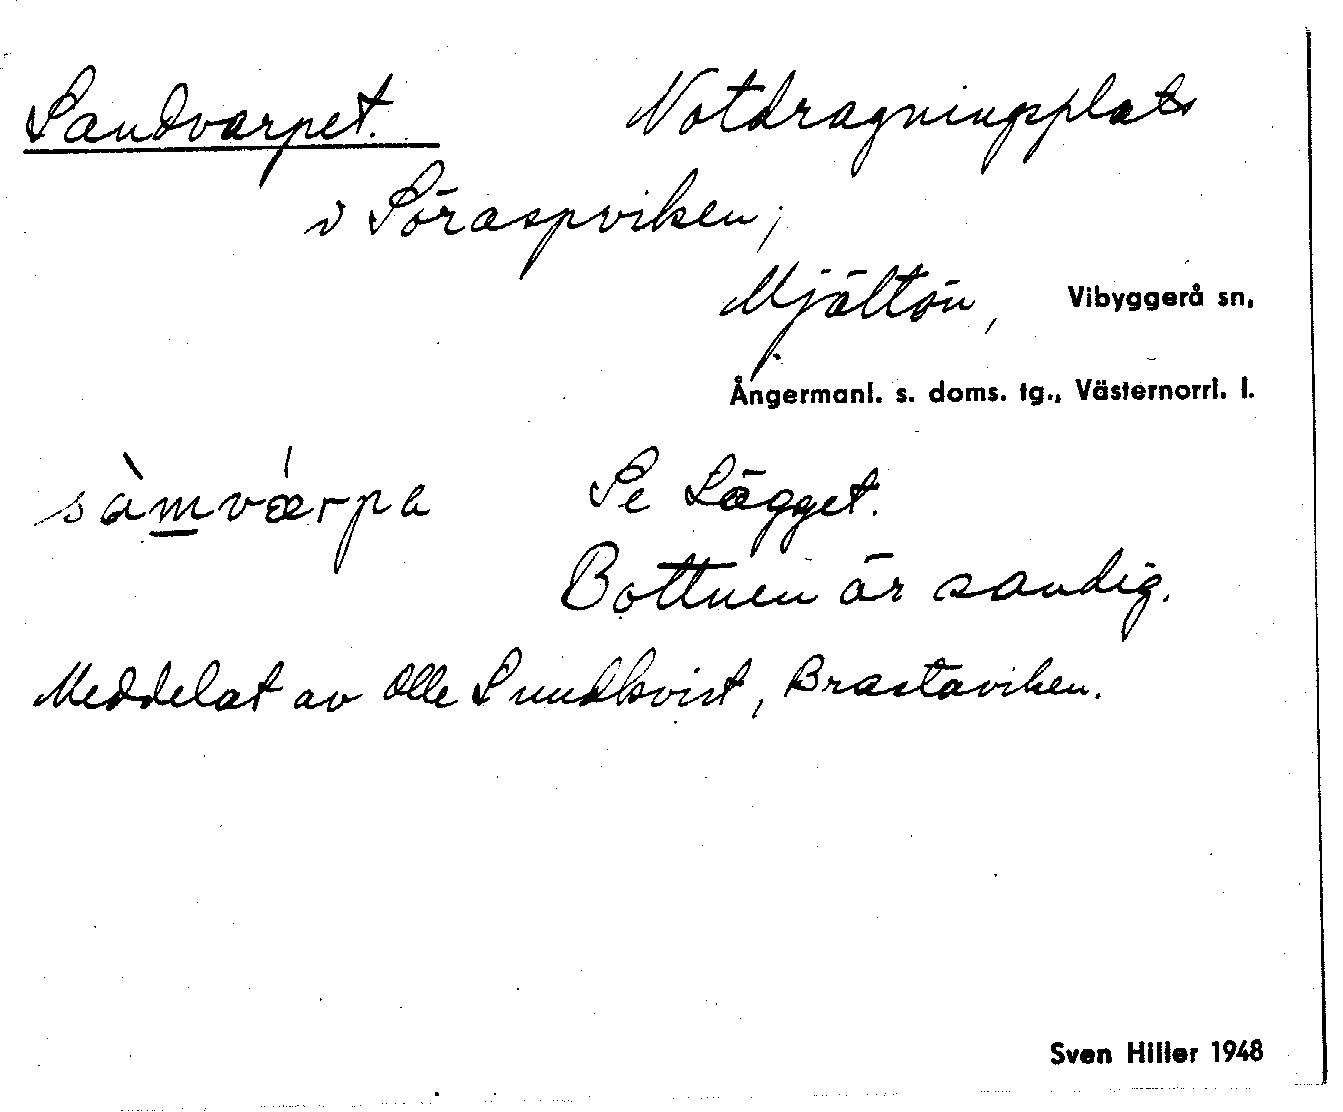 Sandvarpet. Notdragningsplats
i Söraspviken,
Mjältön, Vibyggerå sn,
Ångermanl. s. doms. tg., Västernorrl. l.
sàmvárpa Se Lägget.
Bottnen är sandig.
Meddelat av Olle Sundkvist, Brastaviken.
Sven Hiller 1948